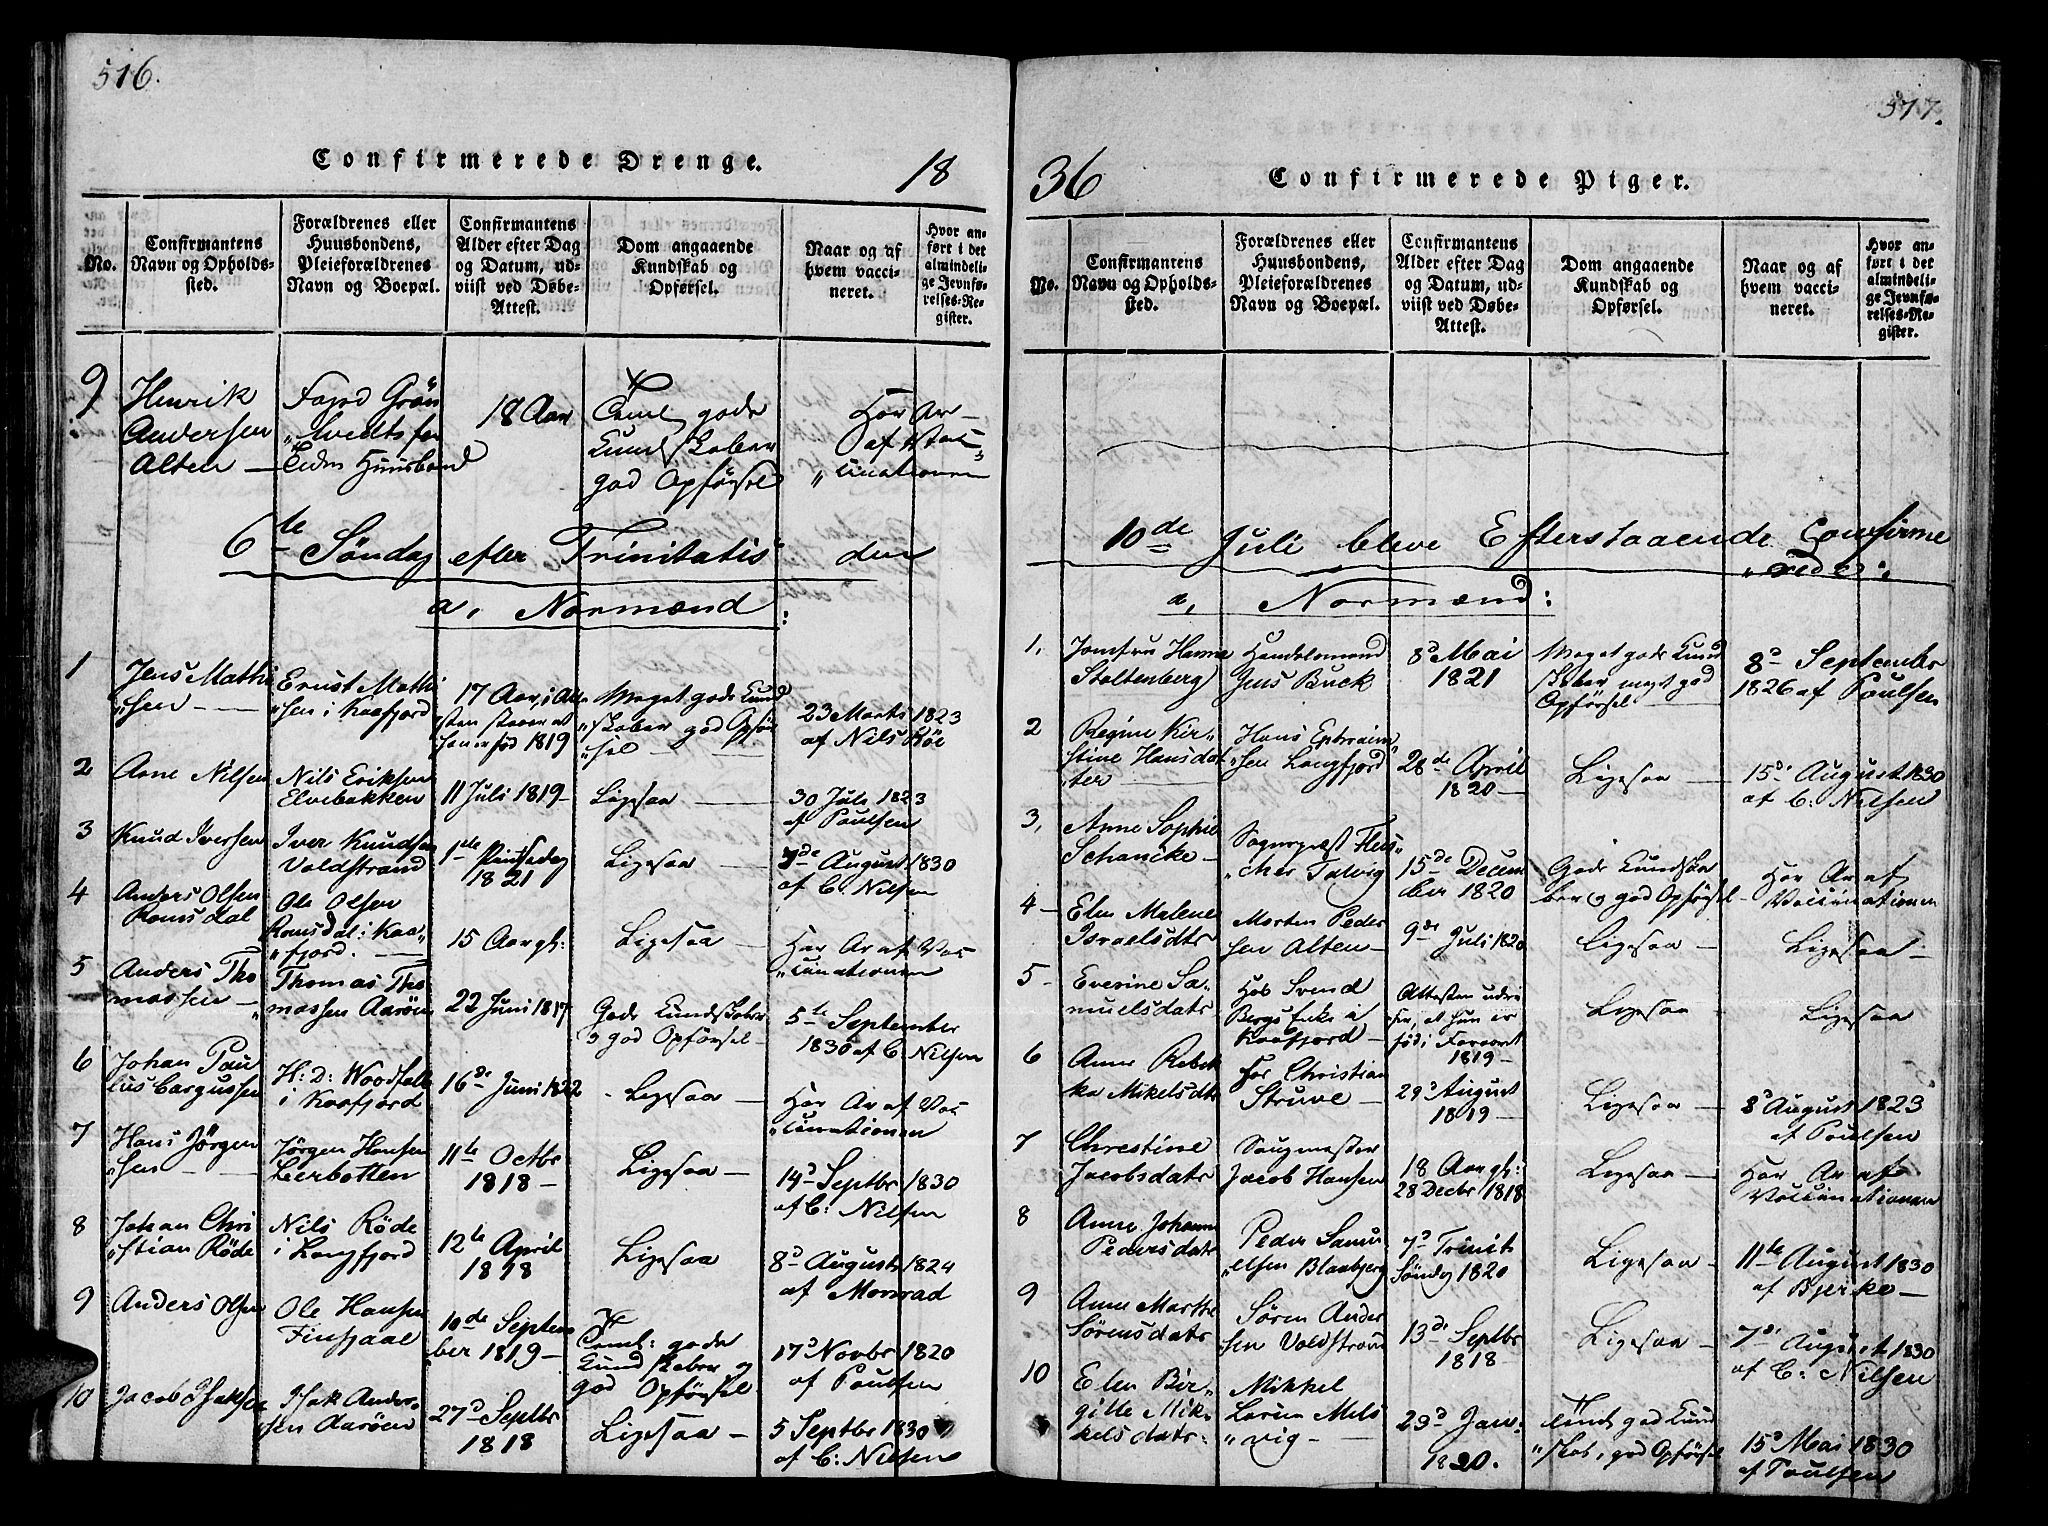 516.
Confirmerede Drenge.
18
No.
Confirmantens
Navn og Opholds-
sted.
Forældrenes eller
Huusbondens,
Pleieforældrenes
Navn og Boepæl.
Confirmantens
Alder efter Dag
og Datum, ud-
viist ved Døbe-
Attest.
Dom angaaende
Kundskab og
Opførsel.
Naar og af
hvem vacci-
neret.
Hvor an-
ført i det
almindeli-
ge Jevnfø-
relses-Re-
gister.
9
Henrik
Andersen
Alten —
18 Aar
gode
Kundskaber
god Opførsel
Har Ar
af Vac
"cinationen
6te Søndag efter Trinitatis den
a, Normænd:
1
Jens Mathi
"sen —
Ernst Mathi
"sen i Kaafjord
17 Aar, i At
"sten
han er fød 1819
Meget gode Kund
"skaber god Opfør
"sel
23 Marts 1823
af Nils Röe
2
Arne Nilsen
Nils Eriksen
Elvebakken
11 Juli 1819
Ligesaa —
30 Juli 1823
af Poulsen
3
Knud Iversen
Iver Knudsen
Voldstrand
1ste Pintsedag
1821
Ligesaa —
7de August 1830
af C: Nilsen
4
Anders Olsen
Romsdal
Ole Olsen
Romsdal i Kaa
"fjord. —
15 Aar gl:
Ligesaa —
Har Ar af Vac
"cinationen
5
Anders Tho
massen —
Thomas Tho
massen Aaröen
22 Juni 1817
Gode Kundskaber
og god Opførsel —
5te September
1830 af C: Nilsen
6
Johan Pau
lus Cargussen
H: D: Woodfall
i Kaafjord
16de Juni 1822
Ligesaa —
Har Ar af Vac
"cinationen
7
Hans Jørgen
"sen —
Jørgen Hansen
Leerbotten
11te Octbr
1818 —
Ligesaa —
14d Septbr 1830
af C: Nilsen
8
Johan Chri
"stian Röde
Nils Röde
i Langfjord
12te April
1818
Ligesaa
8d August 1824
af Monrad
9
Anders Olsen
Ole Hansen
10de Septem
ber 1819 —
gode
Kundskaber og
god Opførsel
17d Novbr 1820
af Poulsen
10
Jacob Isaksen
Isak Ander
sen Aaröen
27d Septbr
1818
Ligesaa —
5 Septbr 1830
af C: Nilsen
517.
36
Confirmerede Piger.
No.
Confirmantens
Navn og Opholds-
sted.
Forældrenes eller
Huusbondens,
Pleieforældrenes
Navn og Boepæl.
Confirmantens
Alder efter Dag
og Datum, ud-
viist ved Døbe-
Attest.
Dom angaaende
Kundskab og
Opførsel.
Naar og af
hvem vacci-
neret.
Hvor an-
ført i det
almindeli-
ge Jevnfø-
relses-Re-
gister.
10de Juli bleve Efterstaaende Confirme
"rede:
a, Normænd:
1,
Jomfru Hanna
Stoltenberg
Handelsmand
Jens Buck
8d Mai
1821
Meget gode Kund
skaber meget god
Opførsel
8d September
1826 af Poulsen
2
Regine Kir-
stine Hansdat
"ter
Hans Ephraim
"sen Langfjord
28de April
1820 —
Ligesaa —
15d August 1830
af C: Nilsen
3,
Anne Sophie
Schancke —
Sognepræst Fleis
"cher Talvig
15de Decem
ber 1820
Gode Kundska
ber og god Opførsel
Har Ar af
Vaccinationen
4 —
Elen Malene
Israelsdtr
Morten Peder
sen Alten —
9de Juli 1820
Ligesaa —
Ligesaa —
5 —
Everine Sa-
muelsdatr
Hos Svend
Bergs Enke i
Kaafjord —
Attesten udvi
ser, at hun er
fød i Foraaret
1819 —
Ligesaa —
Ligesaa
6
Anne Rebek
ka Mikelsdtr
For Christian
Struve —
29d August
1819 —
Ligesaa —
8d August 1823
af Poulsen
7
Chrestine
Jacobsdatr
Saugmester
Jacob Hansen
18 Aar gl:
28 Decbr 1818
Ligesaa —
Har Ar af
Vaccinationen
8
Anne Johanne
Pedersdatr
Peder Samu
"elsen Blaabjerg
7d Trinit
Søndag 1820
Ligesaa —
11te August 1830
af Bjerke —
9
Anne Marthe
Sørensdatr
Søren Ander
sen Voldstrand
13de Septbr
1818 —
Ligesaa
7de August 1830
af C: Nilsen
10
Elen Bir-
gitte Mik-
kelsdatr
Mikkel
Larsen Mels
"vig —
23d Jan:
1820.
god Kund
"skab, god Opførsel
15d Mai 1830
af Poulsen